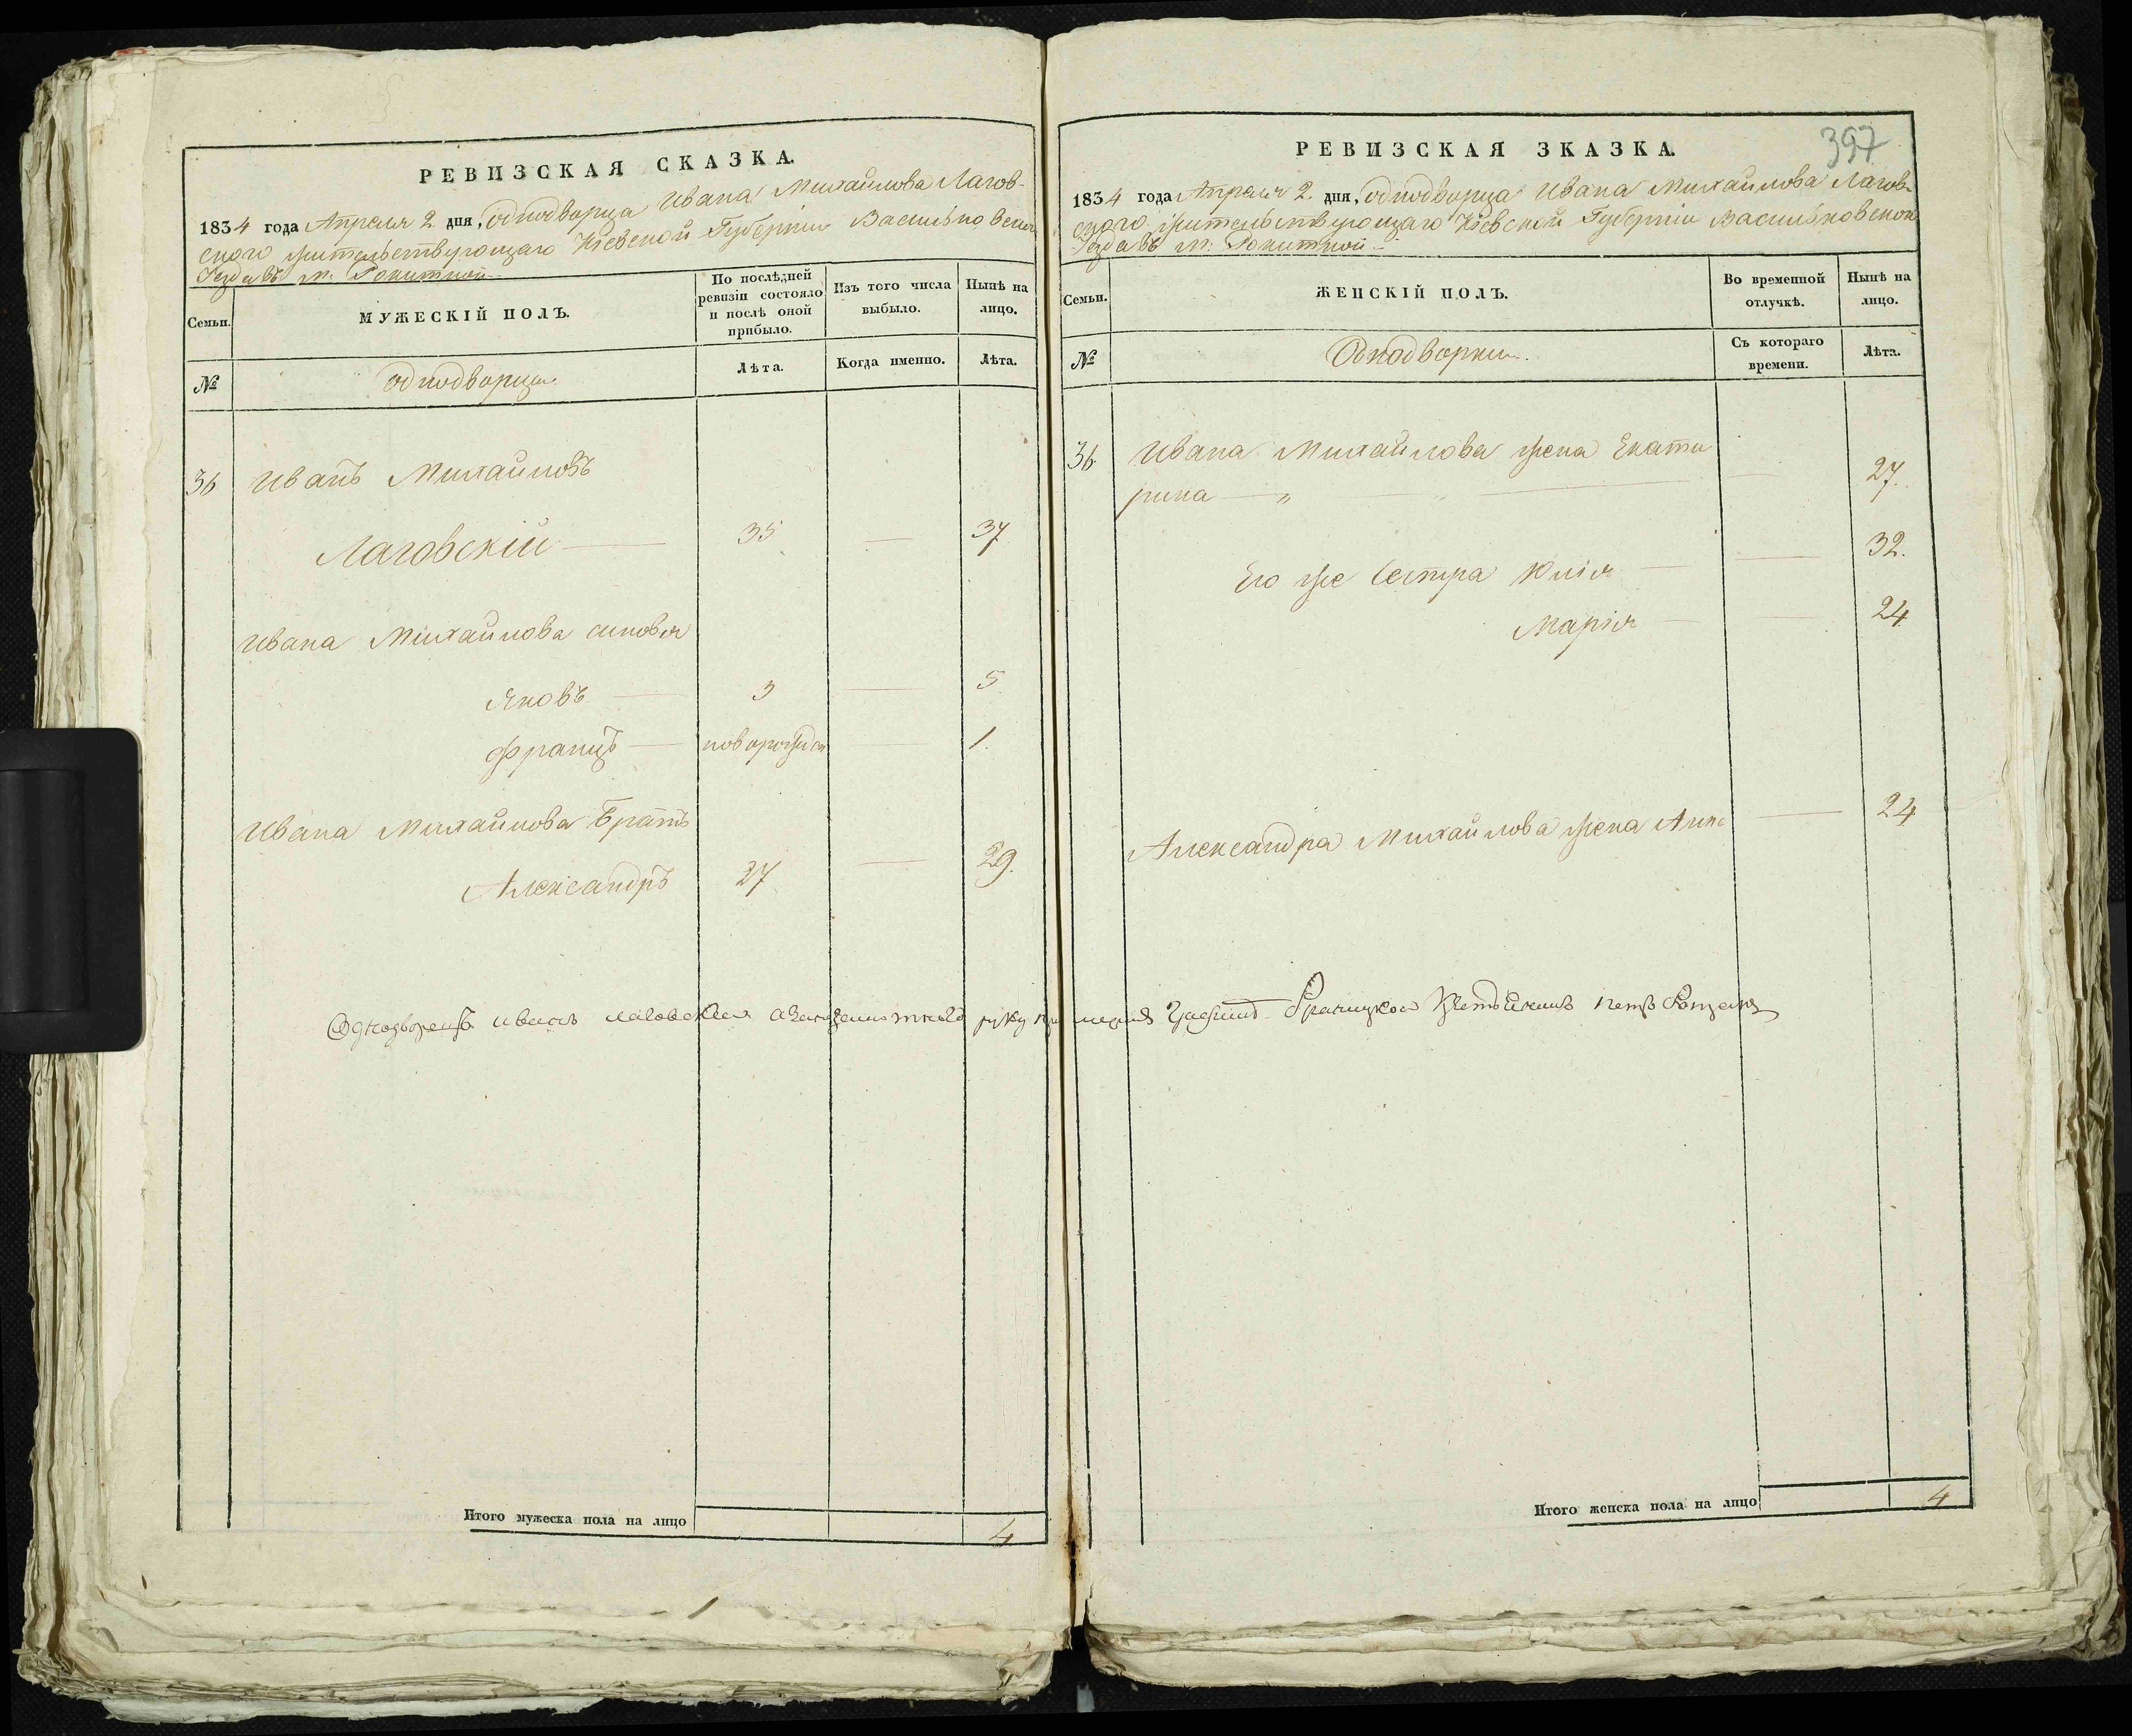 РЕВИЗСКАЯ СКАЗКА.
1834 года Апреля 2 дня, однодворца Ивана Михайлова Лагов-
ского жительствующаго Кіевской Губерніи Васильковскаго
Уезда въ м: Рокитной
Семьи.
МУЖЕСКІЙ ПОЛЪ.
По послѣдней
ревизіи состояло
и послѣ оной
прибыло.
Изъ того числа
выбыло.
Нынѣ на
лицо.
№
однодворцы
Лѣта.
Когда именно.
Лѣта.
36 Иванъ Михайловъ
Лаговскій — 35 — 37
Ивана Михайлова сыновья
Яковъ — 3 — 5.
Францъ — новорожден — 1.
Ивана Михайлова Братъ
Александръ 27 — 29.
Однодворецъ Иванъ Лаговский а
руку
Итого мужеска пола на лицо
4
397
РЕВИЗСКАЯ ЗКАЗКА.
1834 года Апреля 2. дня, однодворца Ивана Михайлова Лагов-
ского жительствующаго Кіевской Губерніи Васильковской
Уезда въ м: Рокитной
Семьи.
ЖЕНСКІЙ ПОЛЪ.
Во временной
отлучкѣ.
Нынѣ на
лицо.
№
Однодворки.
Съ котораго
времени.
Лѣта.
36 Ивана Михайлова жена Екати
рина — „ — 27.
Его же Сестра Юлія — 32.
Марія — 24
Александра Михайлова жена Анна — 24
Итого женска пола на лицо
4